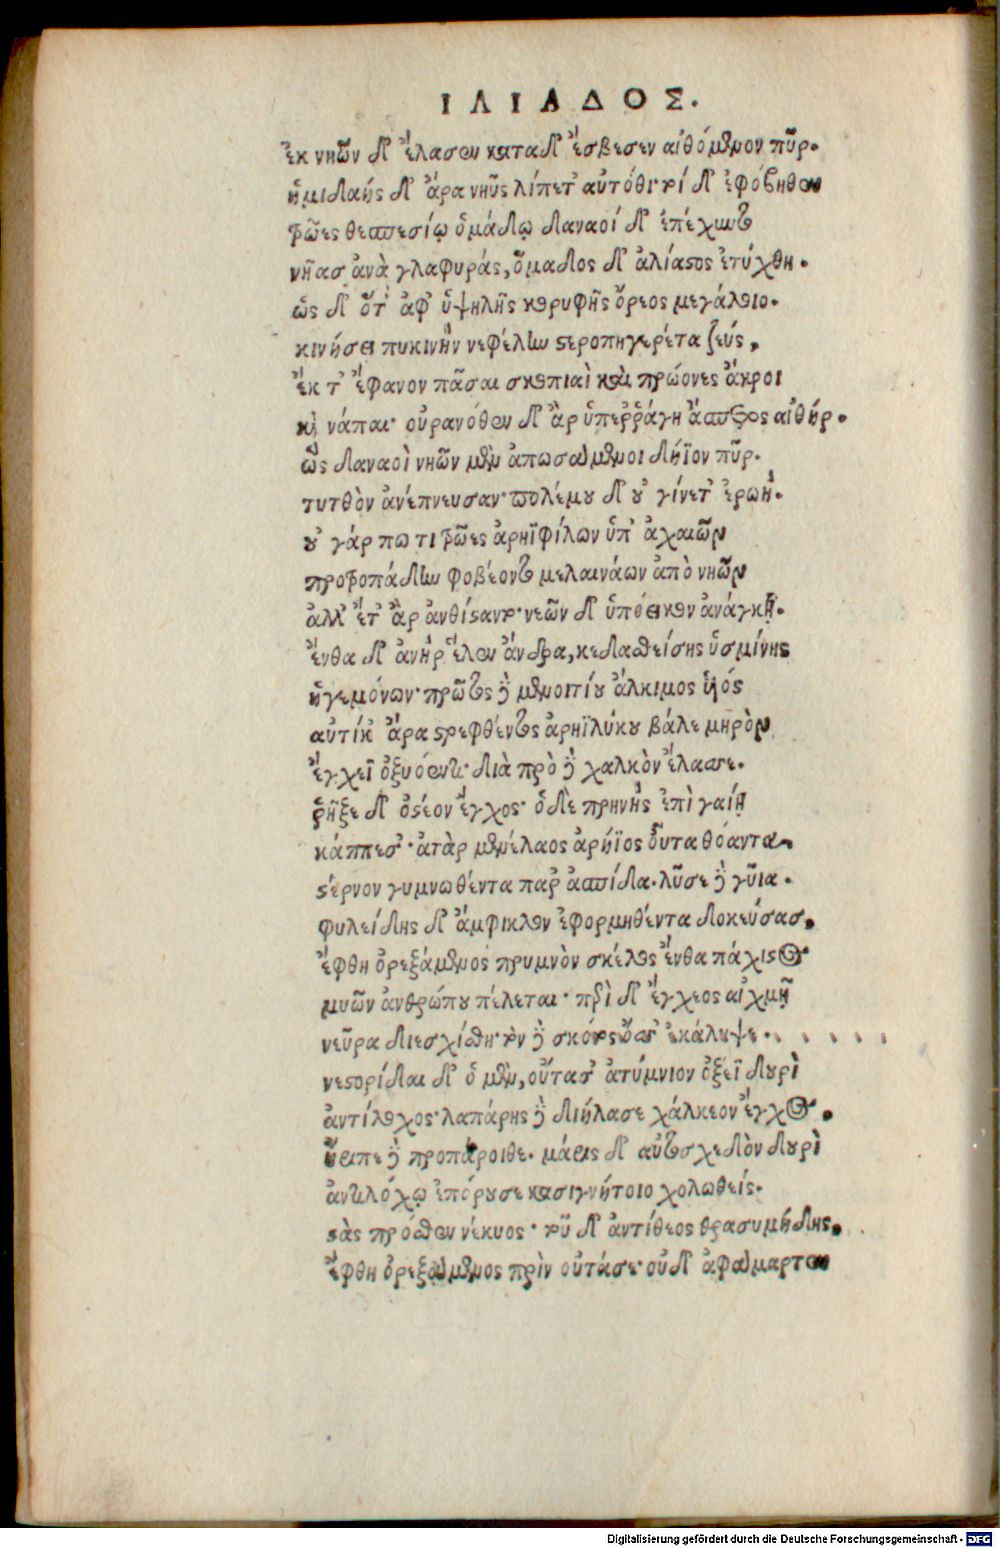 ΙΛΙΑΔΟΣ.
ἐκ νηῶν δ' ἔλασεν κατὰ δ' ἔσβεσεν αἰθόμενον πῦρ.
ἡμιδαὴς δ' ἄρα νηῦς λίπετ' αὐτόθι· τοὶ δ' ἐφόβηθεν
τρῶες θεσπεσίῳ ὁμάδῳ δαναοί δ' ἐπέχυντο
νῆας ἀνὰ γλαφυράς, ὅμαδος δ' ἀλίαστος ἐτύχθη.
ὡς δ' ὅτ' ἀφ' ὑψηλῆς κορυφῆς ὄρεος μεγάλοιο.
κινήσει πυκινὴν νεφέλην στεροπηγερέτα ζεύς,
ἔκ τ' ἔφανον πᾶσαι σκοπιαὶ καὶ πρώονες ἄκροι
καὶ νάπαι· οὐρανόθεν δ' ἂρ ὑπερῤῥάγη ἄσπετος αἰθήρ.
ὣς δαναοὶ νηῶν μὲν ἀπωσάμενοι δήϊον πῦρ.
τυτθὸν ἀνέπνευσαν· πολέμου δ' οὐ γίνετ' ἐρωή.
οὐ γάρ πω τι τρῶες ἀρηϊφίλων ὑπ' ἀχαιῶν
προτροπάδην φοβέοντο μελαινάων ἀπὸ νηῶν
ἀλλ' ἔτ' ἂρ ἀνθίσαντο· νεῶν δ' ὑπόεικον ἀνάγκῃ.
ἔνθα δ' ἀνὴρ ἕλεν ἄνδρα, κεδασθείσης ὑσμίνης
ἡγεμόνων· πρῶτος δὲ μενοιτίου ἄλκιμος υἱός
αὐτίκ' ἄρα στρεφθέντος ἀρηϊλύκου βάλε μηρὸν
ἔγχεϊ ὀξυόεντι· διὰ πρὸ δὲ χαλκὸν ἔλασσε.
ῥῆξε δ' ὀστέον ἔγχος· ὁ δὲ πρηνὴς ἐπὶ γαίῃ
κάππεσ'· ἀτὰρ μενέλαος ἀρήϊος οὖτα θόαντα
στέρνον γυμνωθέντα παρ' ἀσπίδα. λῦσε δὲ γῦια.
φυλείδης δ' ἄμφικλον ἐφορμηθέντα δοκεύσας,
ἔφθη ὀρεξάμενος πρυμνὸν σκέλος ἔνθα πάχιστος
μυῶν ἀνθρώπου πέλεται· περὶ δ' ἔγχεος αἰχμῇ
νεῦρα διεσχίσθη· τὸν δὲ σκότος ὄσσ' ἐκάλυψε.
νεστορίδαι δ' ὁ μὲν, οὔτασ' ἀτύμνιον ὀξέϊ δουρὶ
ἀντίλοχος· λαπάρης δὲ διήλασε χάλκεον ἔγχος.
ἤειπε δὲ προπάροιθε. μάρις δ' αὐτοσχεδὸν δουρὶ
ἀντιλόχῳ ἐπόρουσε κασιγνήτοιο χολωθείς.
στὰς πρόσθεν νέκυος· τοῦ δ' ἀντίθεος θρασυμήδης,
ἔφθη ὀρεξάμενος πρὶν οὐτάσε· οὐδ' ἀφάμαρτεν
Digitalisierung gefördert durch die Deutsche Forschungsgemeinschaft - DFG